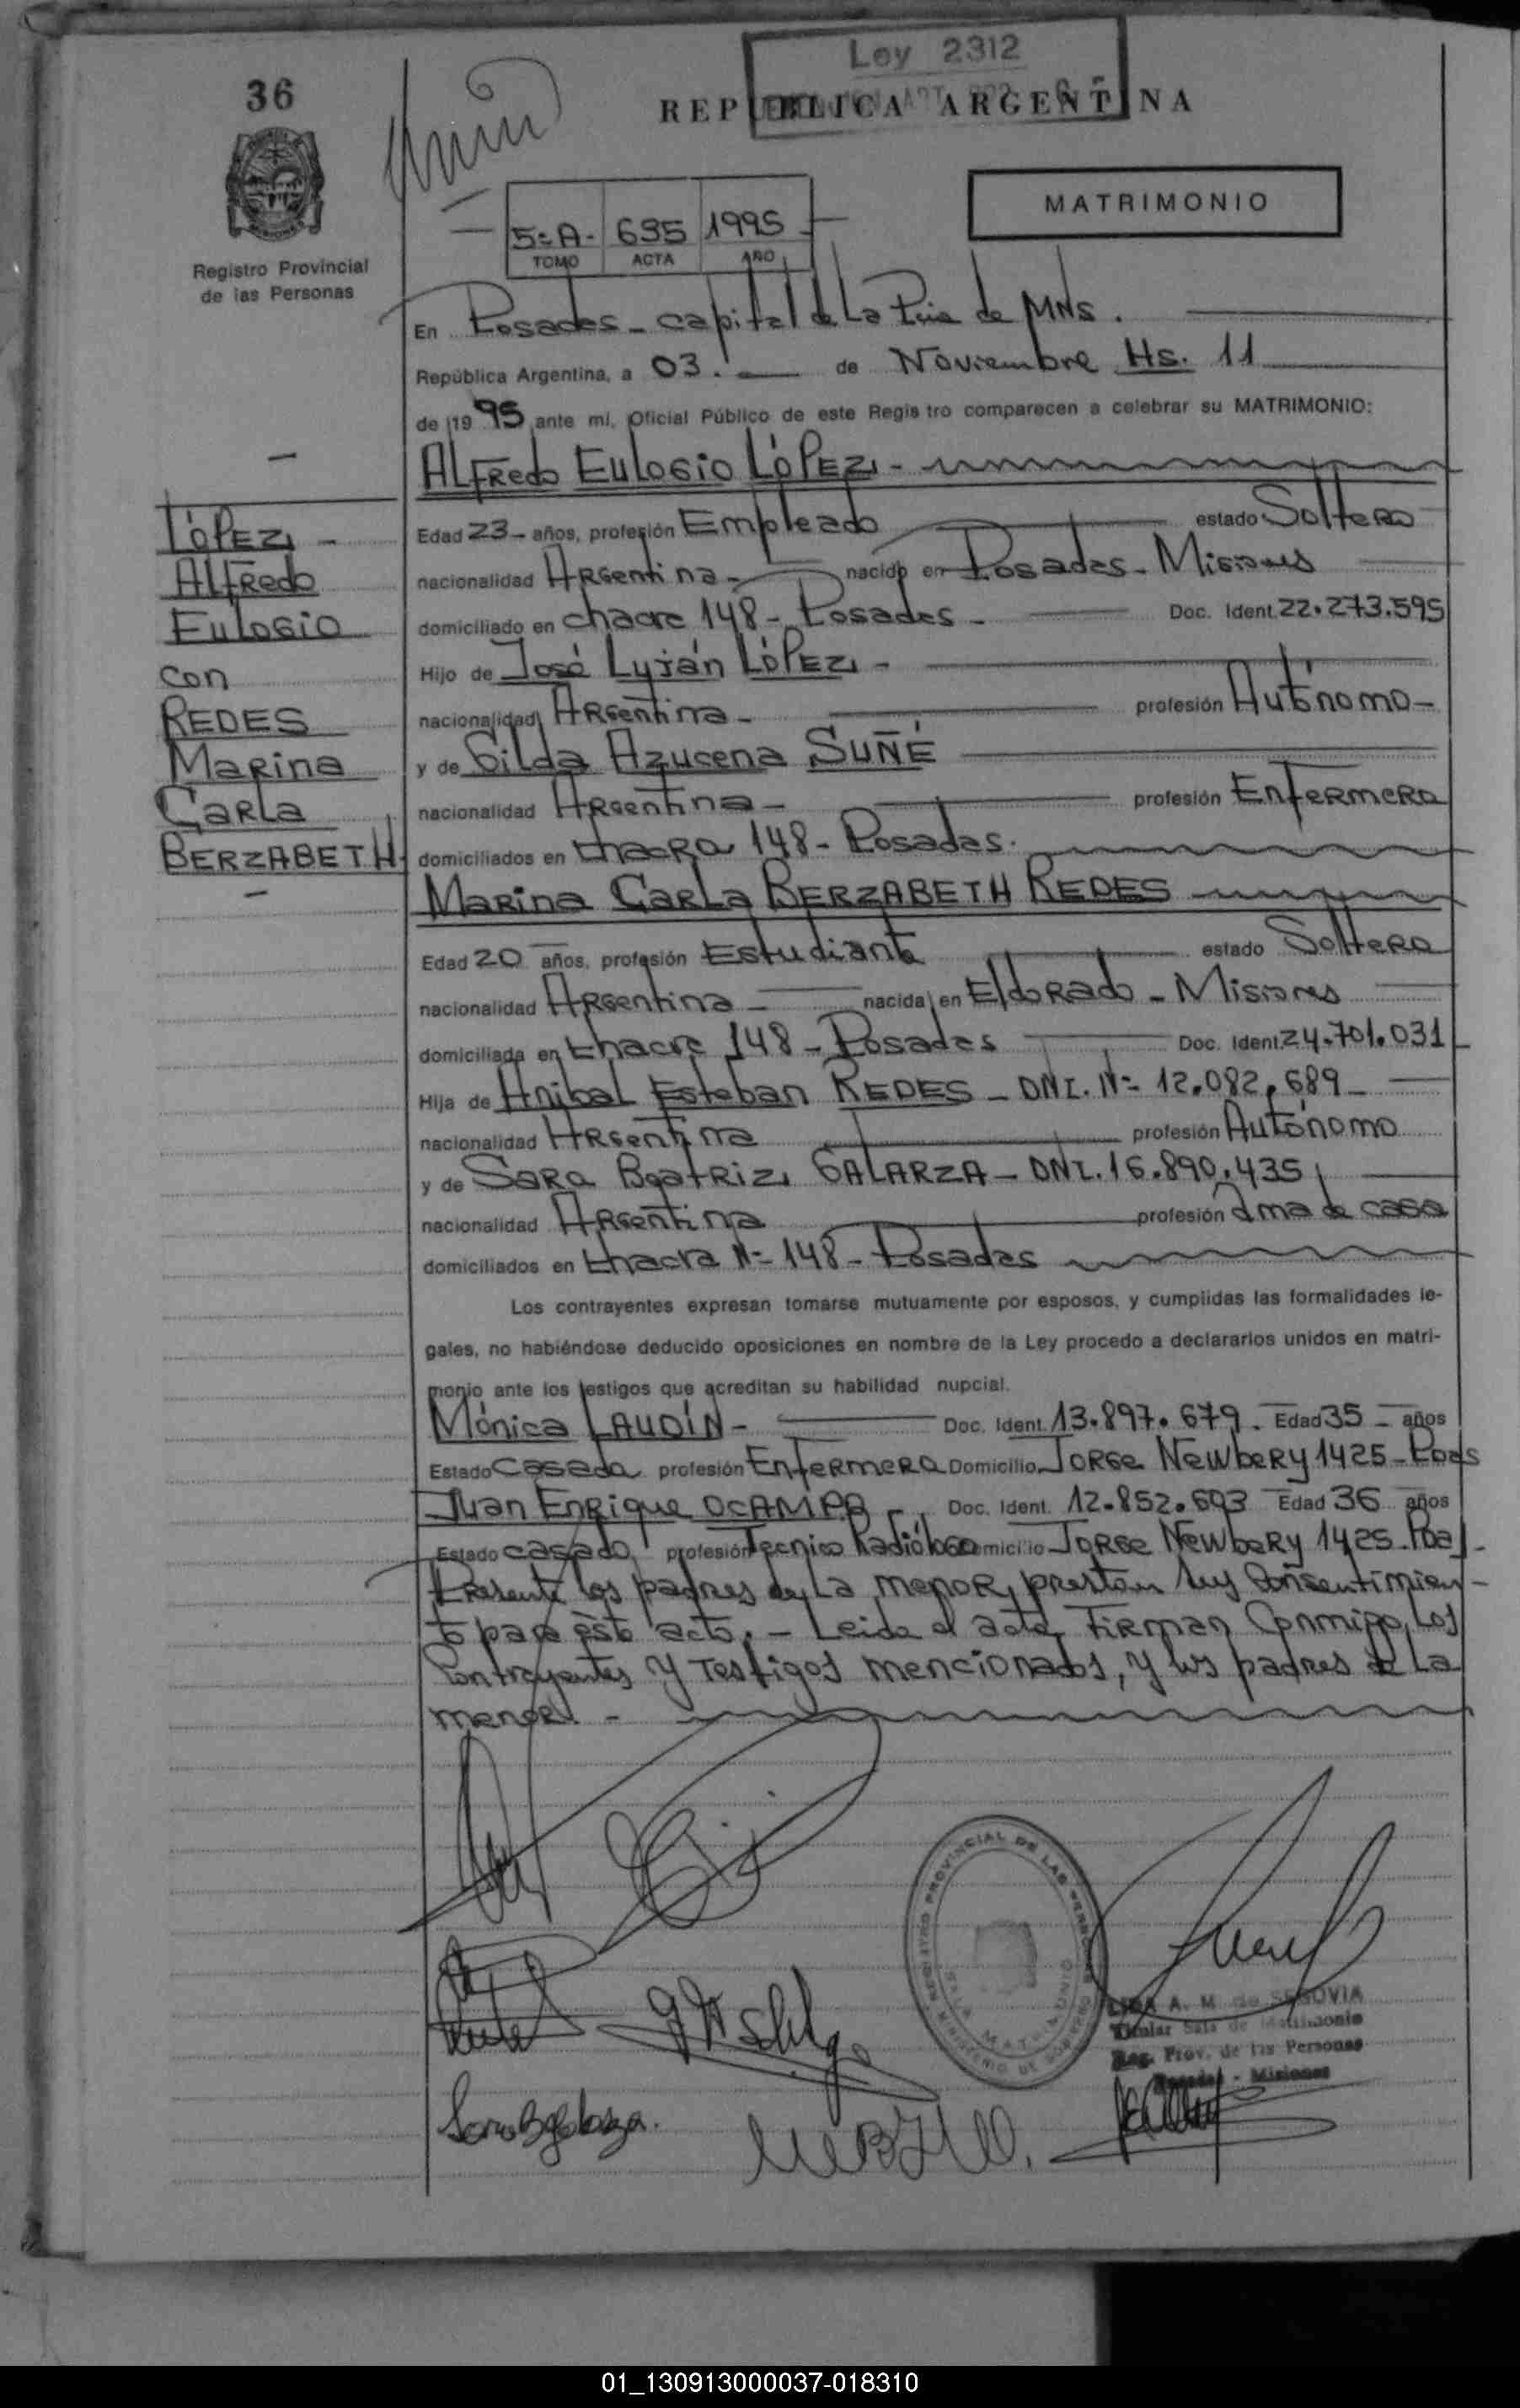 36
Ley 2312
REPUBLICA ARGENTINA
MATRIMONIO
5-A- 695 1995
TOMO ACTA AÑO
Registro Provincial
de las Personas
En Posadas - capital de La Pcia de MNS.
República Argentina, a 03. de Noviembre Hs. 11
de 19 95 ante mí, Oficial Público de este Regis tro comparecen a celebrar su MATRIMONIO:
Alfredo Eulogio LÓPEZ -
LÓPEZ -
Alfredo
Eulogio
con
REDES
Marina
Carla
BERZABETH
Edad 23 - años, profesión Empleado estado Soltero
nacionalidad Argentina - nacido en Posadas - Misiones
domiciliado en chacra 148 - Posadas - Doc. Ident. 22.273.595
Hijo de José Luján LÓPEZ -
nacionalidad Argentina - profesión Autónomo -
y de Gilda Azucena SUÑÉ
nacionalidad Argentina - profesión Enfermera
domiciliados en chacra 148 - Posadas.
Marina Carla BERZABETH REDES
Edad 20 años, profesión Estudiante estado Soltera
nacionalidad Argentina nacida en Eldorado - Misiones
domiciliada en chacra 148 - Posadas Doc. Ident. 24.701.031
Hija de Anibal Esteban REDES - DNI. Nº 12.082.689 -
nacionalidad Argentina profesión Autónomo
y de Sara Beatriz GALARZA - DNI. 16.890.435
nacionalidad Argentina profesión Ama de casa
domiciliados en chacra Nº 148 - Posadas
Los contrayentes expresan tomarse mutuamente por esposos, y cumplidas las formalidades le-
gales, no habiéndose deducido oposiciones en nombre de la Ley procedo a declararlos unidos en matri-
monio ante los testigos que acreditan su habilidad nupcial.
Mónica LAUDÍN - Doc. Ident. 13.897.679. Edad 35 - años
Estado Casada profesión Enfermera Domicilio Jorge Newbery 1425 - Pdas
Juan Enrique OCAMPO - Doc. Ident. 12.852.693 Edad 36 años
Estado casado profesión Tecnico Radiólogo Domicilio Jorge Newbery 1425 - Pdas
Presente los padres de la menor, prestan su consentimien-
to para éste acto. - Leida el acta, Firman Conmigo, Los
Contrayentes y Testigos mencionados, y los padres de La
menor. -
REGISTRO PROVINCIAL DE LAS PERSONAS
MINISTERIO DE GOBIERNO
SALA MATRIMONIO
A. M. de SEGOVIA
Titular Sala de Matrimonio
Reg. Prov. de las Personas
Posadas - Misiones
01_130913000037-018310